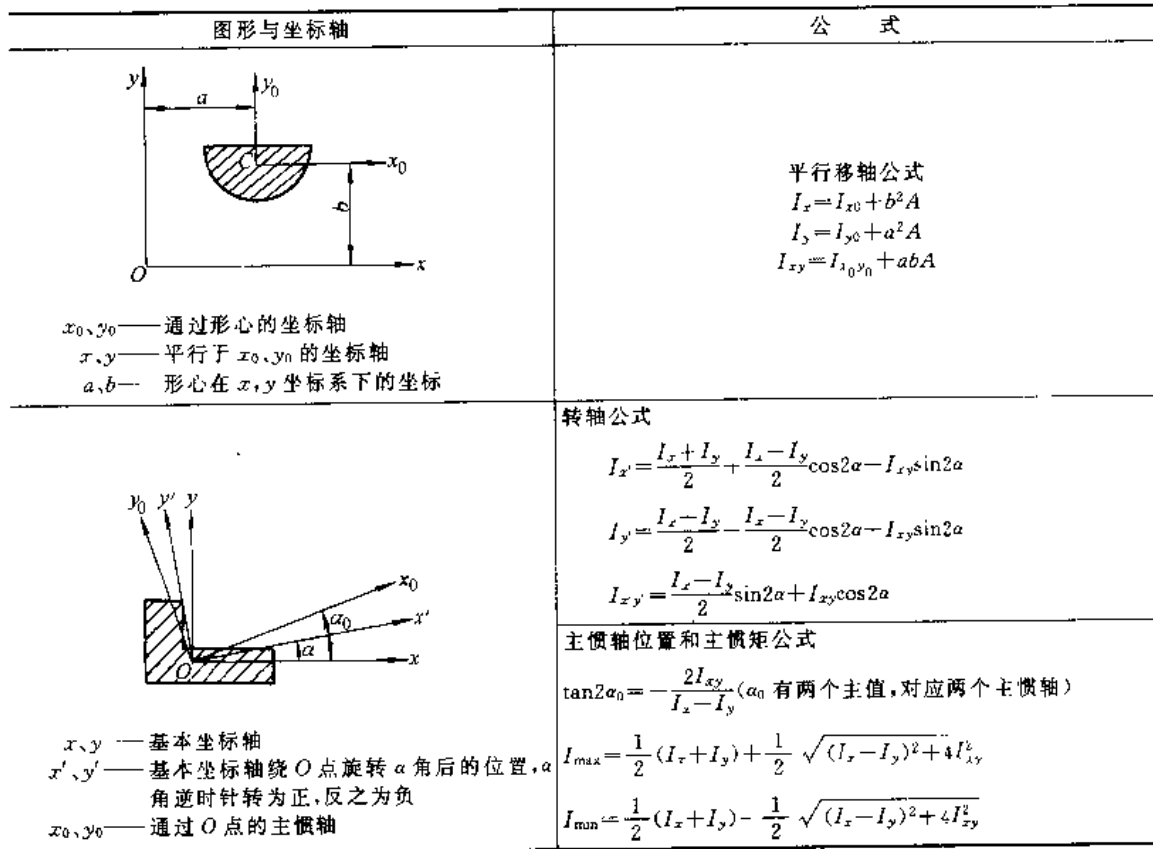 图形与坐标轴
公 式
y
y₀
a
C
x₀
b
O
x
x₀、y₀——通过形心的坐标轴
x、y——平行于 x₀、y₀ 的坐标轴
a、b— 形心在 x,y 坐标系下的坐标
平行移轴公式
I_x=I_{x0}+b²A
I_y=I_{y0}+a²A
I_{xy}=I_{x₀y₀}+abA
y₀
y′
y
x₀
x′
x
α₀
α
O
x、y —基本坐标轴
x′、y′——基本坐标轴绕 O 点旋转 α 角后的位置,α
角逆时针转为正,反之为负
x₀、y₀——通过 O 点的主惯轴
转轴公式
I_{x′}=\frac{I_x+I_y}{2}+\frac{I_x-I_y}{2}cos2α-I_{xy}sin2α
I_{y′}=\frac{I_x-I_y}{2}-\frac{I_x-I_y}{2}cos2α-I_{xy}sin2α
I_{xy′}=\frac{I_x-I_y}{2}sin2α+I_{xy}cos2α
主惯轴位置和主惯矩公式
tan2α₀=-\frac{2I_{xy}}{I_x-I_y}(α₀ 有两个主值,对应两个主惯轴)
I_{max}=\frac{1}{2}(I_x+I_y)+\frac{1}{2}\sqrt{(I_x-I_y)²+4I_{xy}²}
I_{min}=\frac{1}{2}(I_x+I_y)-\frac{1}{2}\sqrt{(I_x-I_y)²+4I_{xy}²}